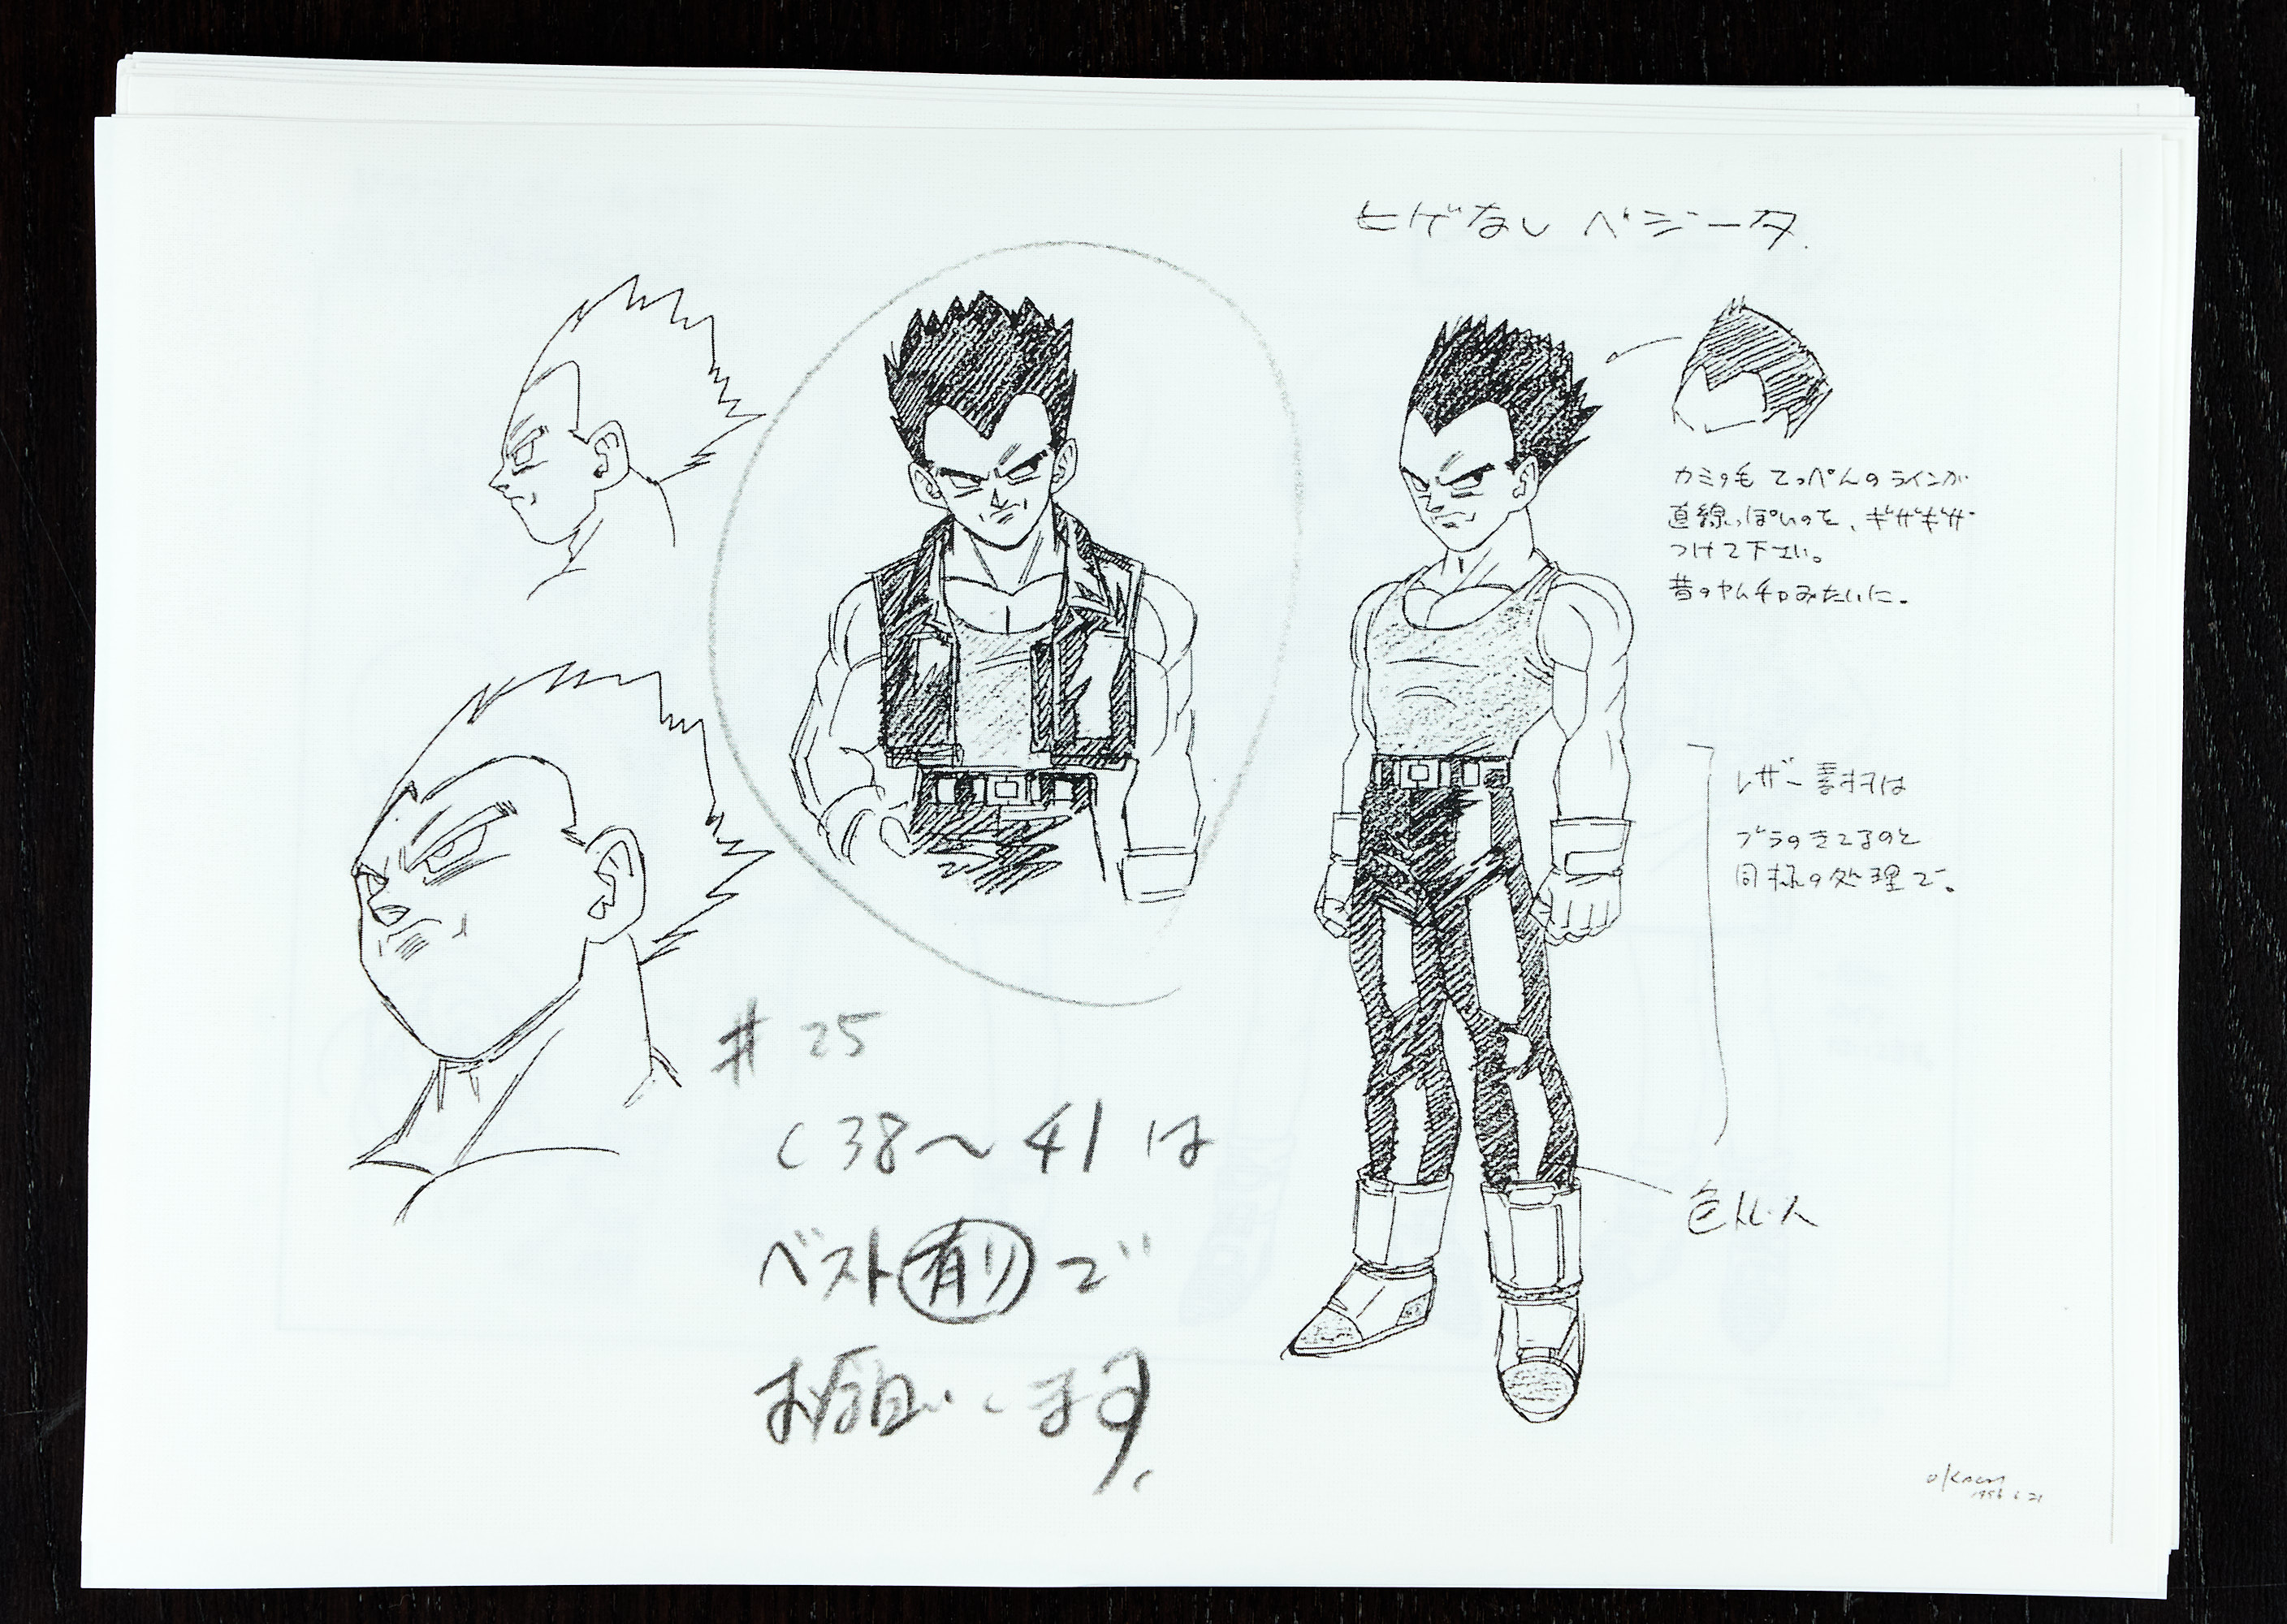 ヒゲなし ベジータ.
カミの毛 てっぺんのラインが
直線っぽいので、ギザギザ
つけて下さい。
昔のヤムチャみたいに。
レザー素材は
ブラのきてるのと
同様の処理で。
色トレス
#25
C38〜41は
ベスト有りで
お願いします
1996 6 21